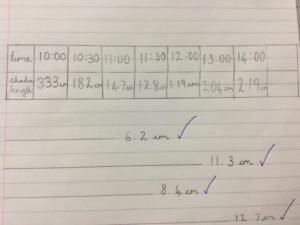 time 10:00 10:30 11:00 11:30 12:00 13:00 14:00
shadow length 333cm 182cm 147cm 128cm 119cm 204cm 219cm
6.2 cm
11.3 cm
8.4 cm
12.7cm